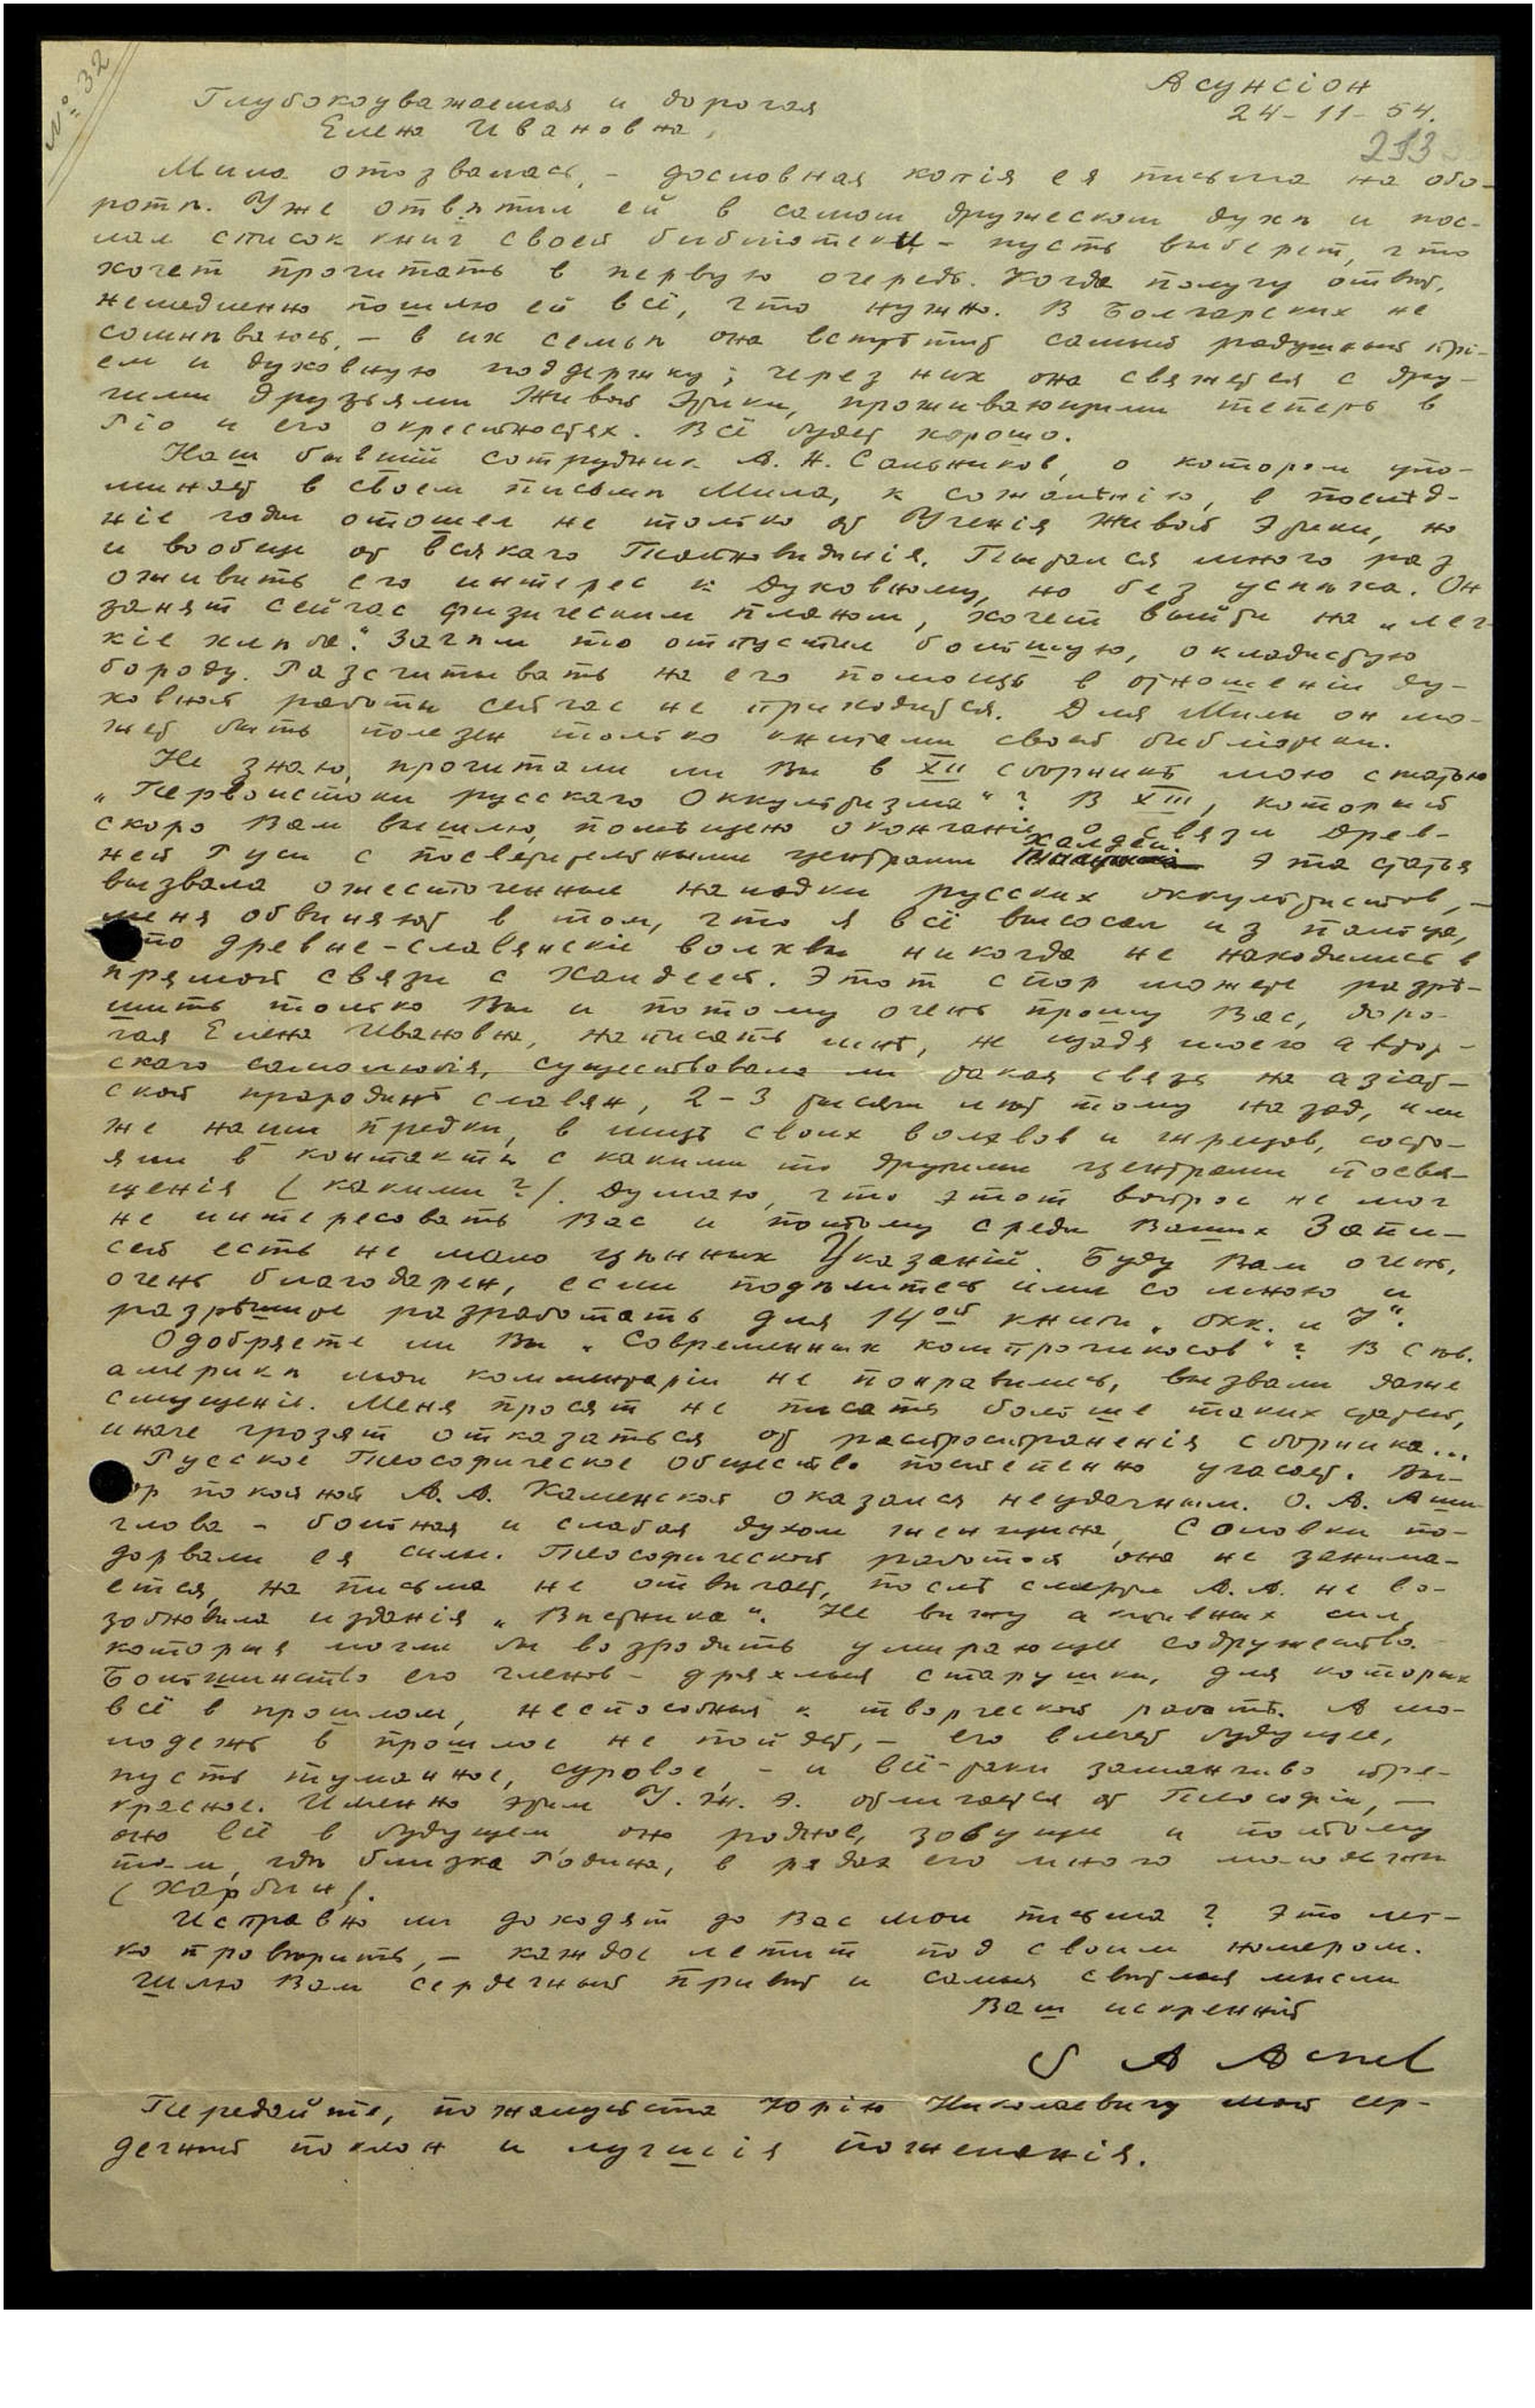 № 32
Асунсіон
24-11-54.
Глубокоуважаемая и дорогая
Елена Ивановна,
213
Мила отозвалась, - дословная копія ея письма на обо-
ротѣ. Уже отвѣтил ей в самом дружеском духѣ и пос-
лал список книг своей библіотеки - пусть выберет, что
хочет прочитать в первую очередь. Когда получу отвѣт,
немедленно пошлю ей всё, что нужно. В Болгарских не
сомнѣваюсь, - в их семьѣ она встрѣтит самый радушный прі-
ем и духовную поддержку; через них она свяжется с дру-
гими друзьями Живой Этики, проживающими теперь в
Ріо и его окрестностях. Всё будет хорошо.
Наш бывшій сотрудник А. Н. Сальников, о котором упо-
минает в своем письмѣ Мила, к сожалѣнію, в послѣд-
ніе годы отошел не только от Ученія Живой Этики, но
и вообще от всякаго Тайновидѣнія. Пытался много раз
оживить его интерес к духовному, но без успѣха. Он
занят сейчас физическим планом, хочет выйти на „лег-
кіе хлѣба". Зачѣм то отпустил большую, окладистую
бороду. Разсчитывать на его помощь в отношеніи ду-
ховной работы сейчас не приходится. Для Милы он мо-
жет быть полезен только книгами своей библіотеки.
Не знаю, прочитали ли Вы в XII сборникѣ мою статью
„Первоистоки русскаго Оккультизма"? В XIII, который
скоро Вам вышлю, помѣщено окончаніе о связи древ-
ней Руси с посвятительными центрами Халдеи. Эта статья
вызвала ожесточенные нападки русских оккультистов, -
меня обвиняют в том, что я всё высосал из пальца,
что древне-славянскіе волхвы никогда не находились в
прямой связи с Халдеей. Этот спор может разрѣ-
шить только Вы и потому очень прошу Вас, доро-
гая Елена Ивановна, написать мнѣ, не щадя моего автор-
скаго самолюбія, существовала ли такая связь на азіат-
ской прародинѣ славян, 2-3 тысячи лѣт тому назад, или
же наши предки, в лицѣ своих волхвов и жрецов, состо-
яли в контактѣ с какими то другими центрами посвя-
щенія (какими?). Думаю, что этот вопрос не мог
не интересовать Вас и поэтому среди Ваших Запи-
сей есть не мало цѣнных Указаній. Буду Вам очень,
очень благодарен, если подѣлитесь ими со мною и
разрѣшите разработать для 14ой книги „Окк. и Й".
Одобряете ли Вы „Современных компрачикосов"? В Сѣв.
америкѣ мои комментаріи не понравились, вызвали даже
смущеніе. Меня просят не писать больше таких статей,
иначе грозят отказаться от распространенія сборника...
Русское Теософическое Общество постепенно угасает. Вы-
бор покойной А. А. Каменской оказался неудачным. О. А.
- больная и слабая духом женщина, Соловки по-
дорвали ея силы. Теософической работой она не занима-
ется, на письма не отвѣчает, послѣ смерти А. А. не во-
зобновила изданія „Вѣстника". Не вижу активных сил,
которыя могли бы возродить умирающее содружество.
Большинство его членов - дряхлыя старушки, для которых
всё в прошлом, неспособныя к творческой работѣ. А мо-
лодежь в прошлое не пойдет, - его влечет будущее,
пусть туманное, суровое, - и всё-таки заманчиво пре-
красное. Именно этим У. Ж. Э. отличается от Теософіи, -
оно всё в будущем, оно родное, зовущее и поэтому
там, гдѣ близка Родина, в рядах его много молодежи
(Харбин).
Исправно ли доходят до Вас мои письма? Это лег-
ко провѣрить, - каждое летит под своим номером.
Шлю Вам сердечный привѣт и самыя свѣтлыя мысли
Ваш искренній
Передайте, пожалуйста Юрію Николаевичу мой сер-
дечный поклон и лучшія пожеланія.